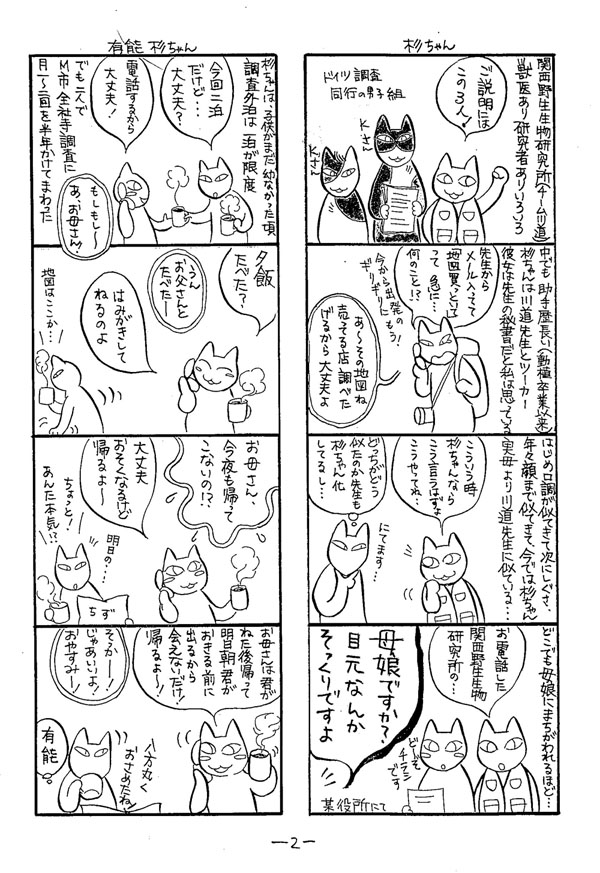 杉ちゃん
関西野生生物研究所(チーム川道)
獣医あり研究者ありいろいろ
ご説明には
この3人!
ドイツ調査
同行の男子組
Kさん
Kさん
中でも助手歴長い(動植卒業以来)
杉ちゃんは川道先生とツーカー
彼女は先生の秘書だと私は思っている
先生から
メール入ってて
地図買っとい
って急に…
何のこと!?
今から出発の
ギリギリにもう!
あ〜その地図ね
売ってる店調べた
げるから大丈夫よ
はじめ口調が似てきて次にしぐさ、
年々顔まで似てきて今では杉ちゃん
実母より川道先生に似ている…
こういう時
杉ちゃんなら
こう言うはずよ
こうやってね…
どっちがどう
似たのか先生も
杉ちゃん化
してるし…
にてます…
どこでも母娘にまちがわれるほど…
お電話した
関西野生生物
研究所の…
母娘ですか?
目元なんか
そっくりですよ
どーぞ
チラシ
です
某役所にて
有能 杉ちゃん
杉ちゃんは、子供がまだ幼なかった頃
調査外泊は一泊が限度
今回二泊
だけど…
大丈夫?
電話するから
大丈夫!
でも二人で
M市全社寺調査に
月1〜二回を半年かけてまわった
もしもし〜
あ、お母さん!
夕飯
たべた?
うん
お父さんと
たべたー
はみがきして
ねるのよ
地図はここか…
お母さん、
今夜も帰って
こないの!?
大丈夫
おそくなるけど
帰るよ〜
明日の…
ちょっと!
あんた本気!?
ちず
お母さんは君が
ねた後帰って
明日朝君が
おきる前に
出るから
会えないだけ!
帰るよ〜!
そっかー!
じゃあいいよ!
おやすみー
八方丸く
おさめたね!
有能
—2—